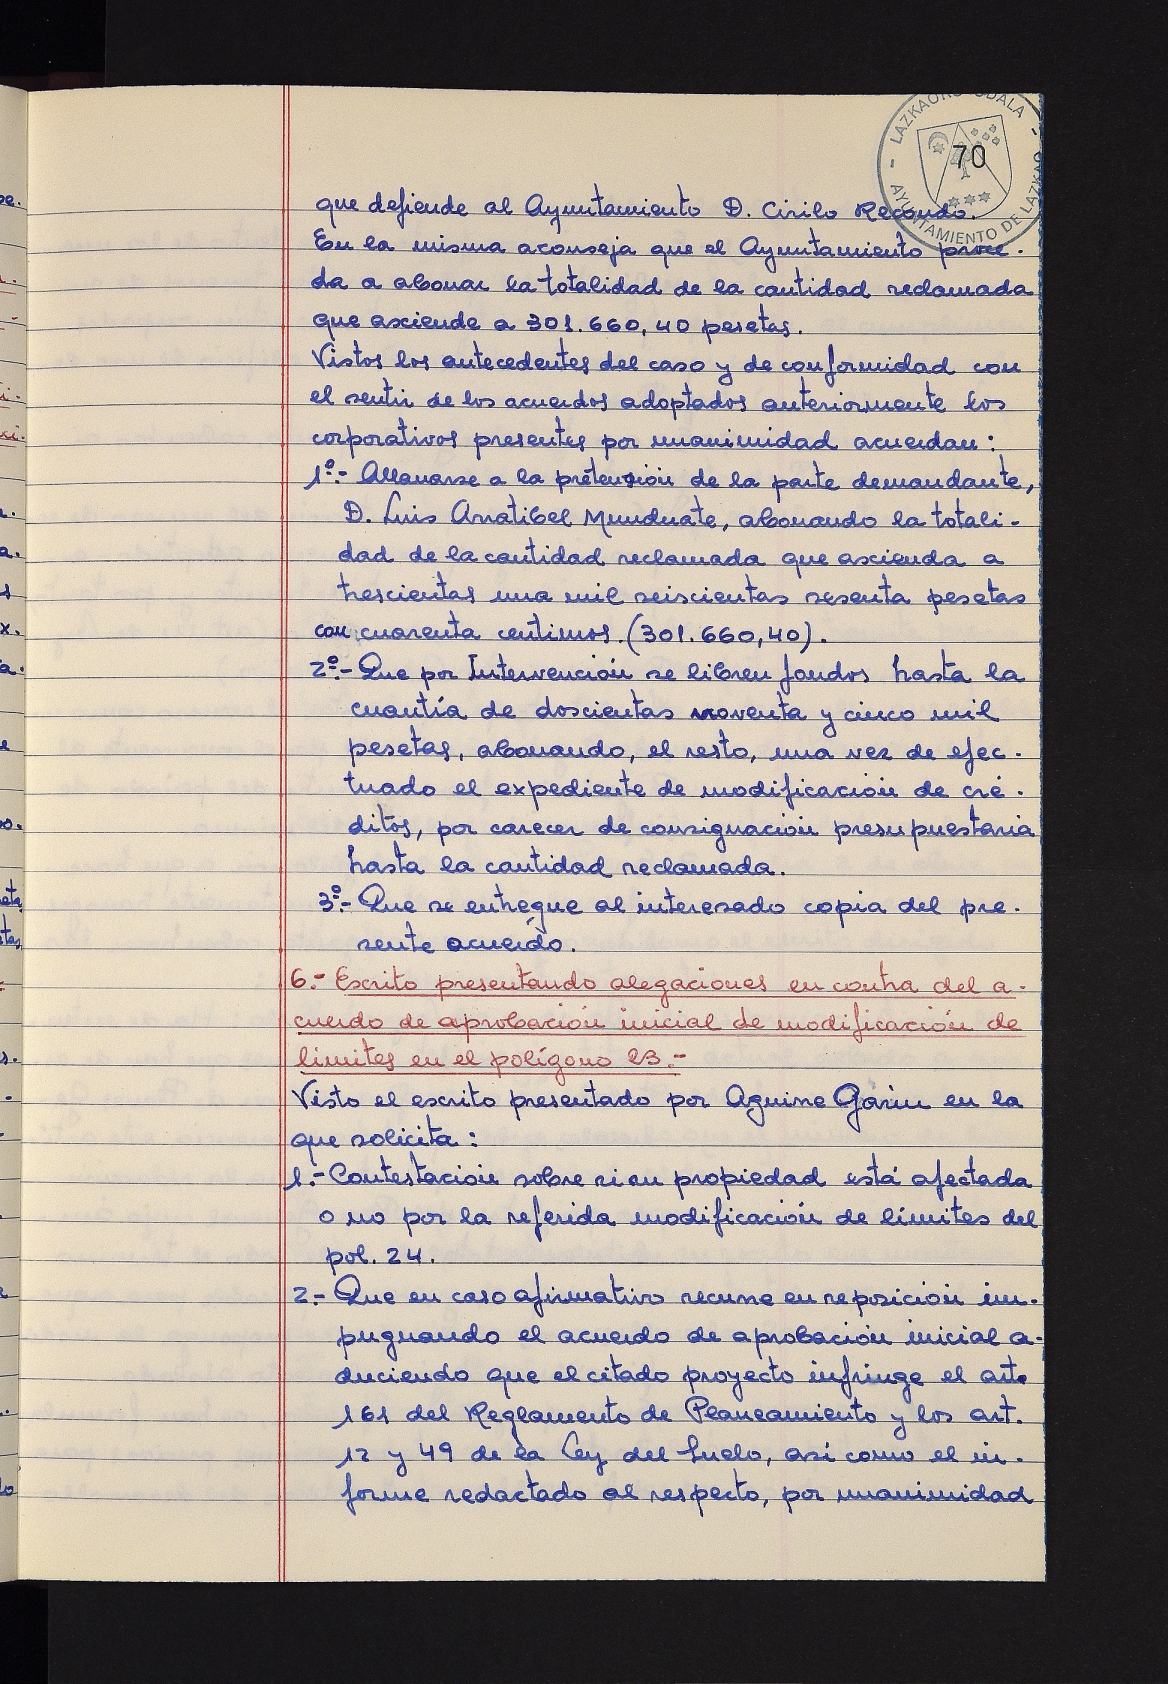 LAZKAOKO UDALA
AYUNTAMIENTO DE LAZKAO
70
que defiende al Ayuntamiento D. Cirilo Recondo.
En la misma aconseja que el Ayuntamiento proce-
da a abonar la totalidad de la cantidad reclamada
que asciende a 301.660,40 pesetas.
Vistos los antecedentes del caso y de conformidad con
el sentir de los acuerdos adoptados anteriormente los
corporativos presentes por unanimidad acuerdan:
1º.- Allanarse a la pretensión de la parte demandante,
D. Luis Arratibel Munduate, abonando la totali-
dad de la cantidad reclamada que ascienda a
trescientas una mil seiscientas sesenta pesetas
con cuarenta centimos. (301.660,40).
2º.- Que por Intervención se libren fondos hasta la
cuantía de doscientas noventa y cinco mil
pesetas, abonando, el resto, una vez de efec-
tuado el expediente de modificación de cré-
ditos, por carecer de consignación presupuestaria
hasta la cantidad reclamada.
3º.- Que se entregue al interesado copia del pre-
sente acuerdo.
6.- Escrito presentando alegaciones en contra del a-
cuerdo de aprobación inicial de modificación de
limites en el polígono 23.-
Visto el escrito presentado por Aguirre Garin en la
que solicita:
1.- Contestación sobre si su propiedad está afectada
o no por la referida modificación de límites del
pol. 24.
2.- Que en caso afirmativo recurre en reposición im-
pugnando el acuerdo de aprobación inicial a-
duciendo que el citado proyecto infringe el art.
161 del Reglamento de Planeamiento y los art.
12 y 49 de la Ley del Suelo, así como el in-
forme redactado al respecto, por unanimidad